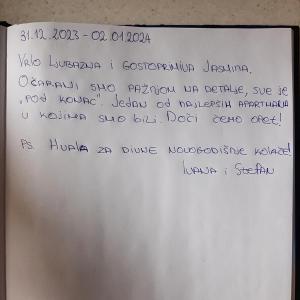 31.12.2023 - 02.01.2024
Vrlo ljubazna i gostoprimiva Jasmina.
Očarani smo pažnjom na detalje, sve je
"pod konac". Jedan od najlepših apartmana
u kojima smo bili. Doći ćemo opet!
Ps. Hvala za divne novogodišnje kolače!
Ivana i Stefan